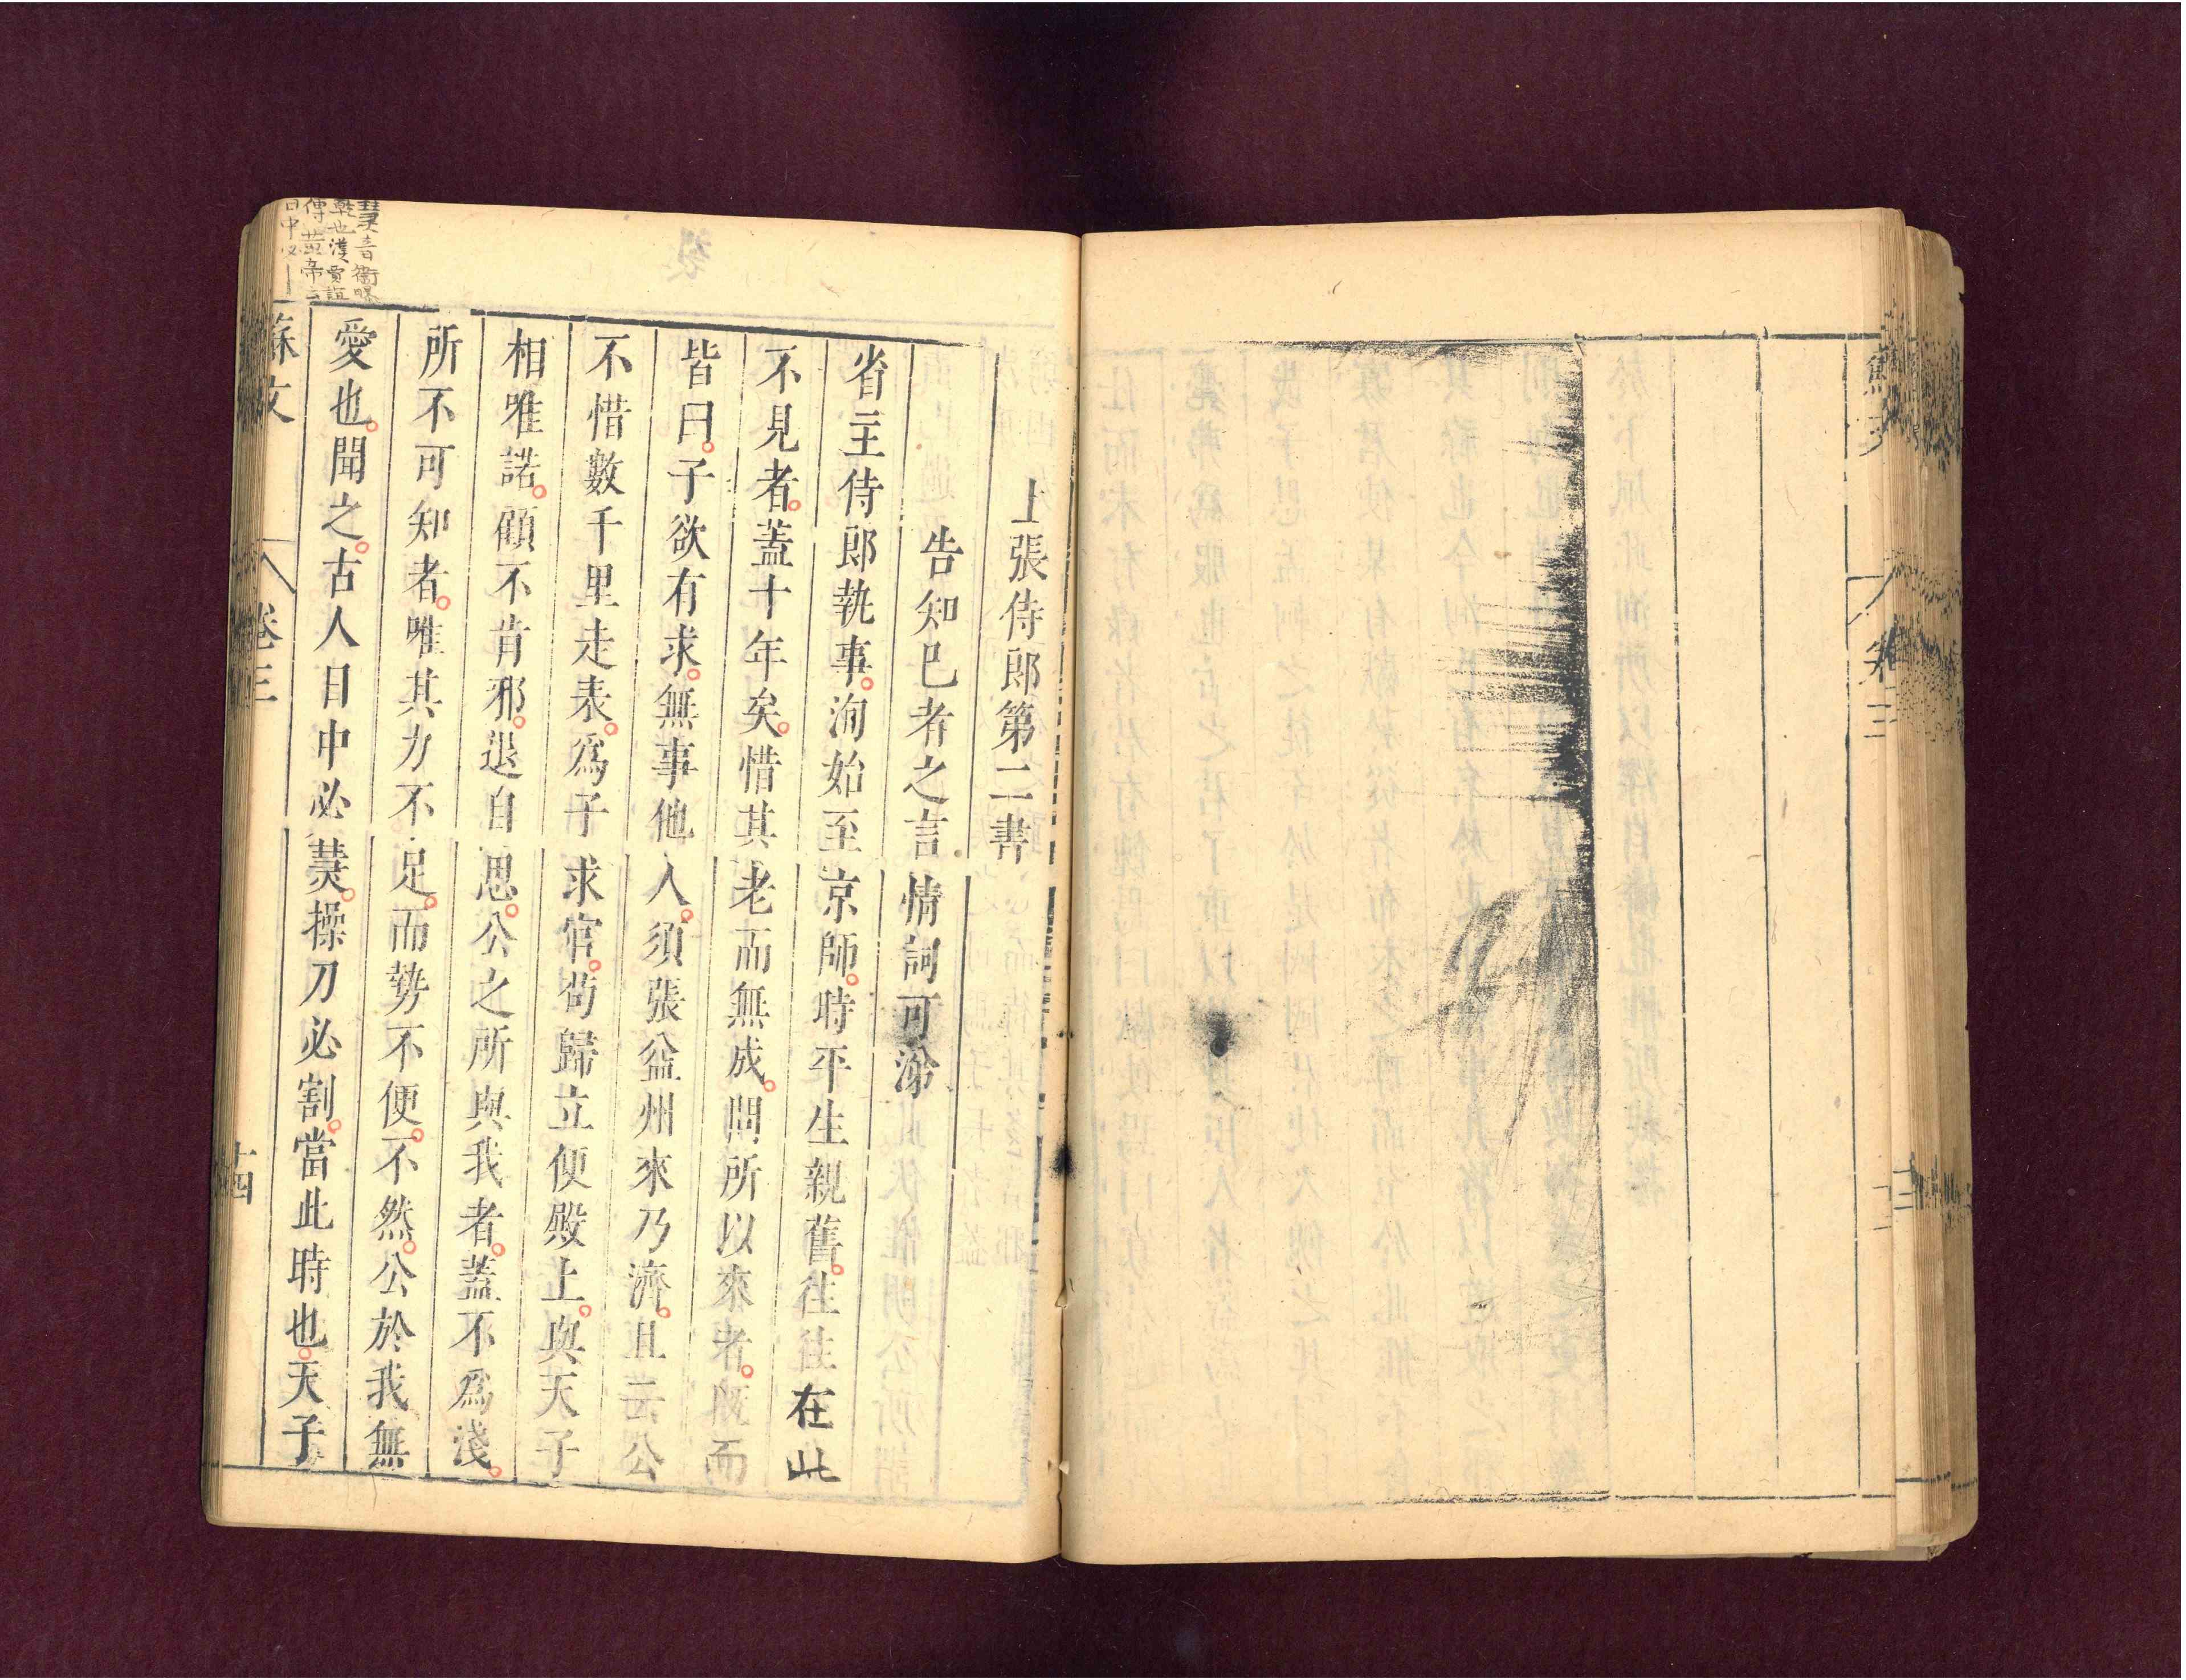 蘇文
卷三
上張侍郎第二書
告知已者之言情詞可涕
省主侍郎執事洵始至京師時平生親舊往往在此
不見者蓋十年矣惜其老而無成問所以來者既而
皆曰子欲有求無事他人須張益州來乃濟且云公
不惜數千里走表爲子求官苟歸立便殿上與天子
相唯諾顧不肯邪退自思公之所與我者蓋不爲淺
所不可知者唯其力不足而勢不便不然公於我無
愛也聞之古人日中必熭操刀必割當此時也天子
蘇文
卷三
十四
熭音衞曝
乾也漢賈誼
傳黃帝
日中必